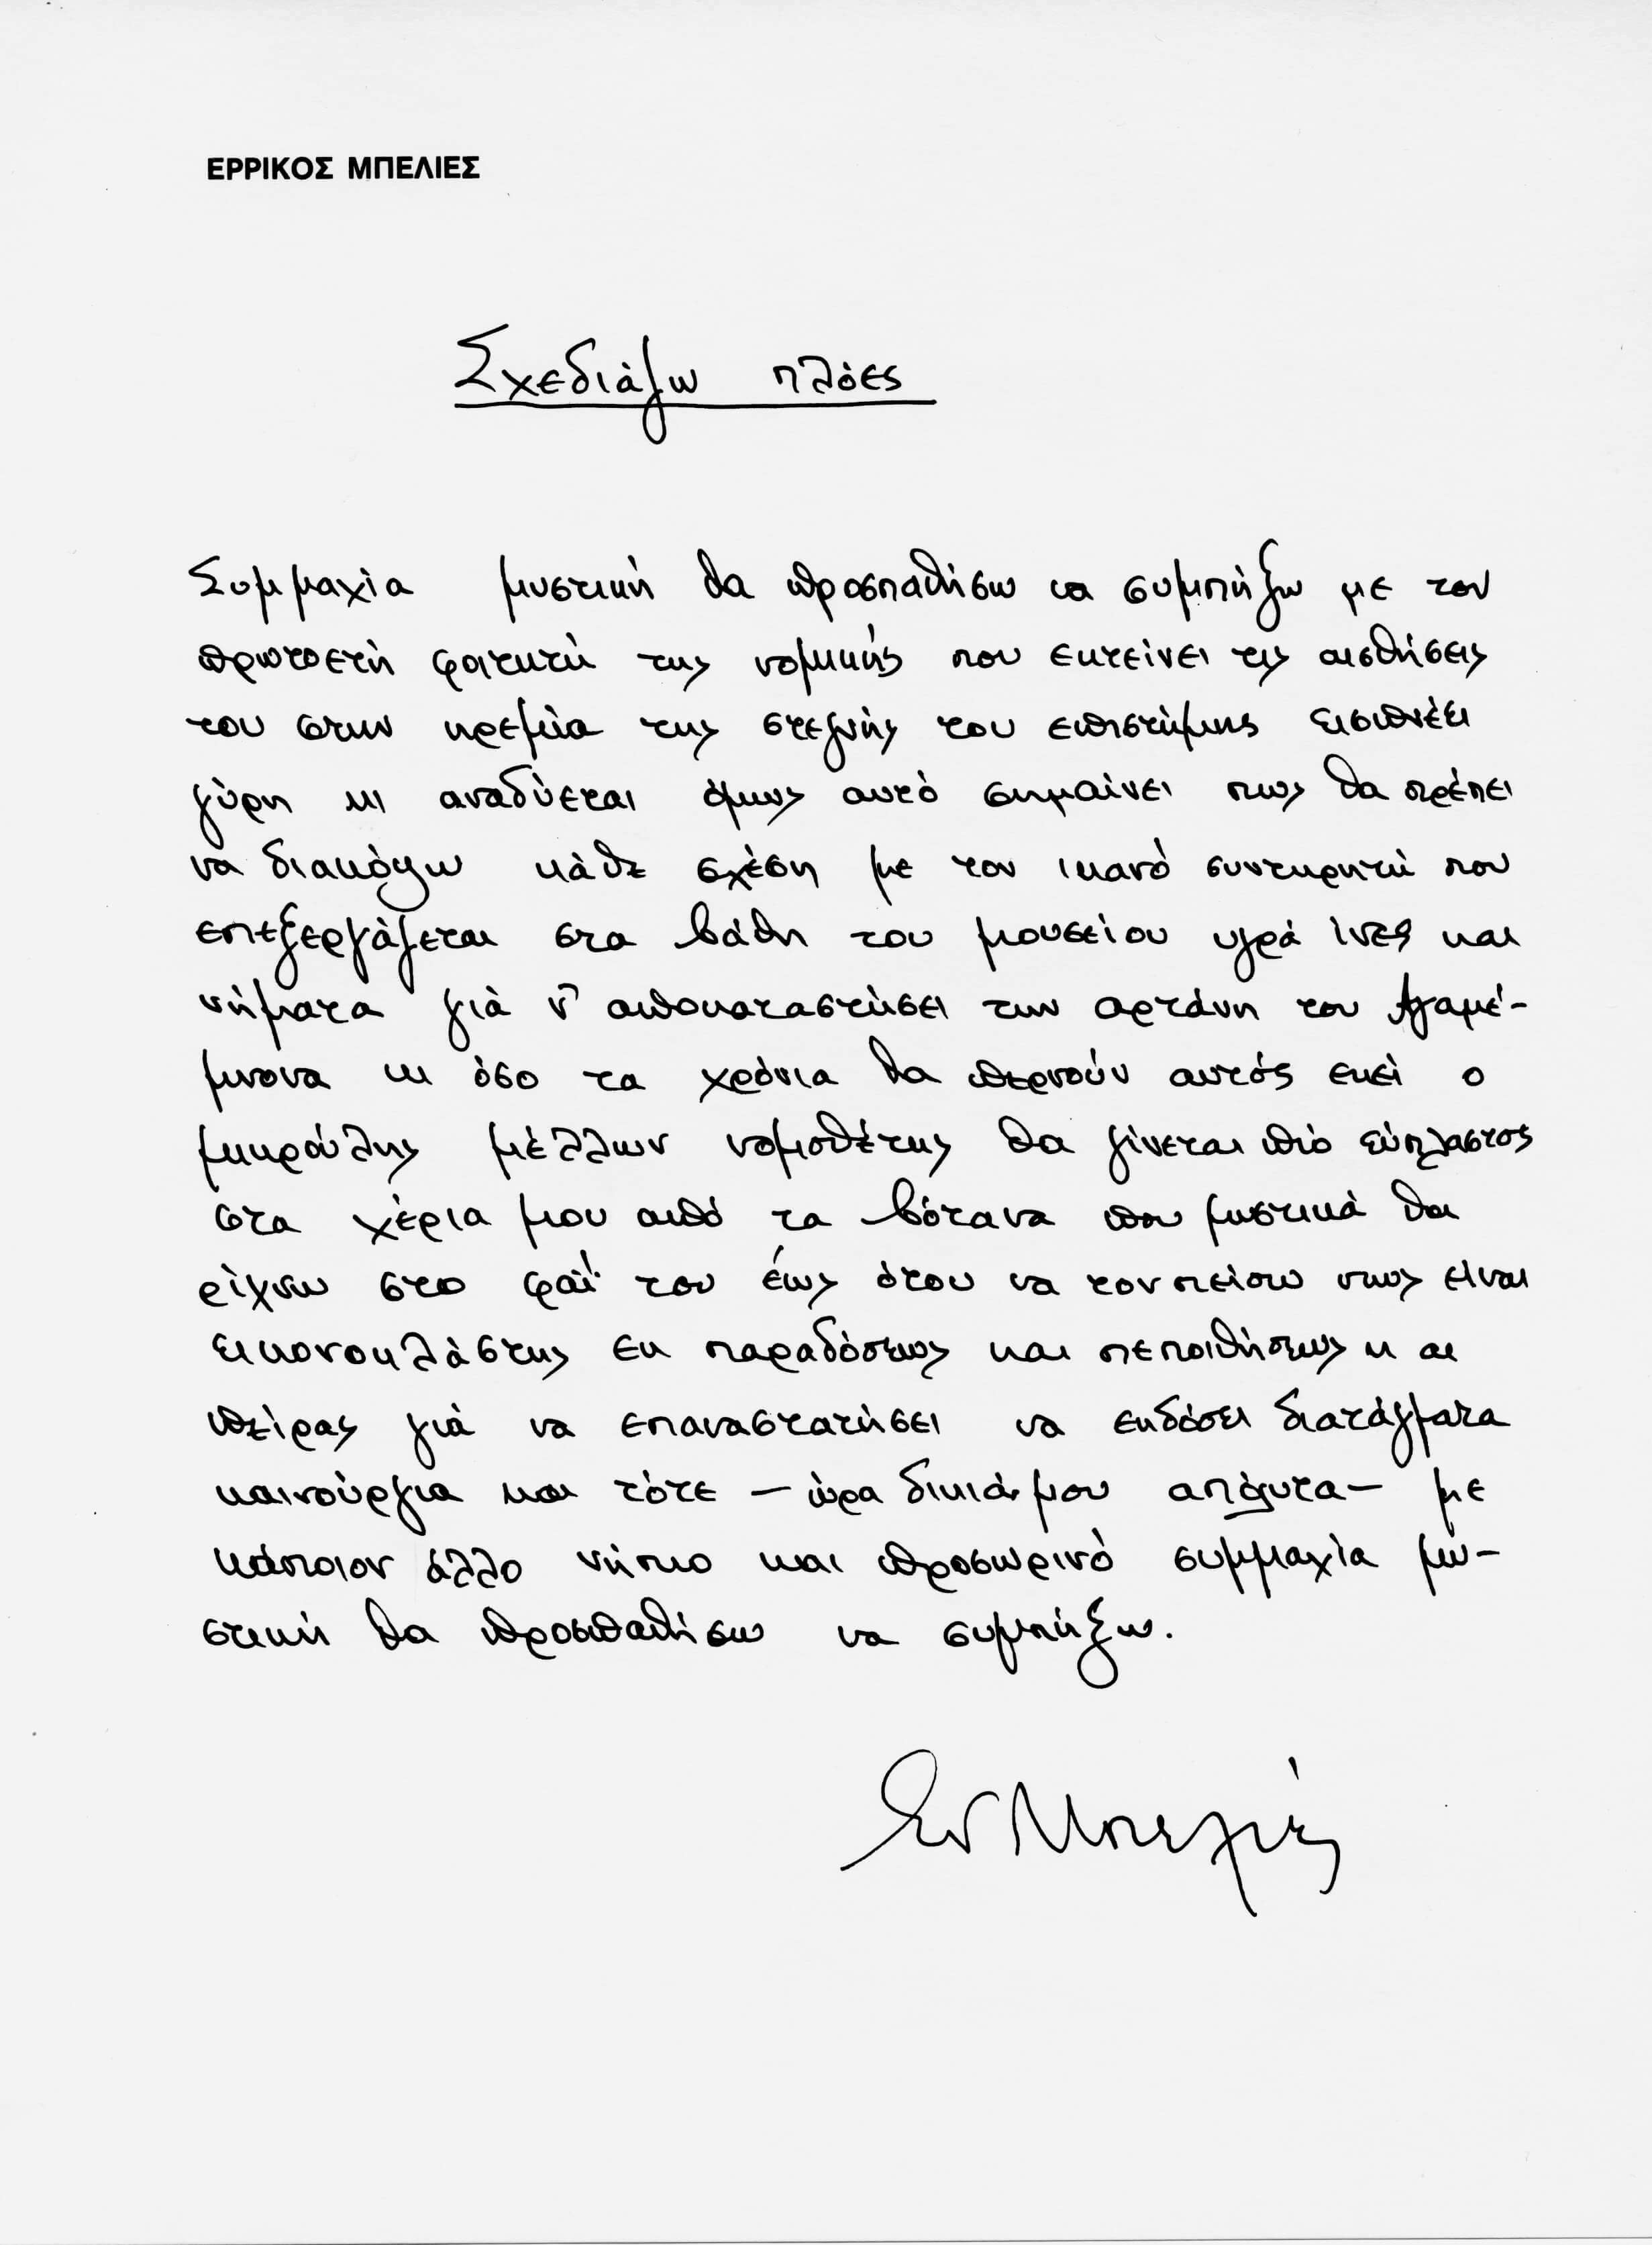 ΕΡΡΙΚΟΣ ΜΠΕΛΙΕΣ
Σχεδιάζω πλόες
Συμμαχία μυστική θα προσπαθήσω να συμπήξω με τον
πρωτοετή φοιτητή της νομικής που εκτείνει τις αισθήσεις
του στην ηρεμία της στεγνής του επιστήμης εισπνέει
γύρη κι αναδύεται όμως αυτό σημαίνει πως θα πρέπει
να διακόψω κάθε σχέση με τον ικανό συντηρητή που
επεξεργάζεται στα βάθη του μουσείου υγρά ίνες και
νήματα γιά ν' αποκαταστήσει την αρτάνη του Αγαμέ-
μνονα κι όσο τα χρόνια θα περνούν αυτός εκεί ο
μικρούλης μέλλων νομοθέτης θα γίνεται πιό εύπλαστος
στα χέρια μου από τα βότανα που μυστικά θα
ρίχνω στο φαΐ του έως ότου να τον πείσω πως είναι
εικονοκλάστης εκ παραδόσεως και πεποιθήσεως και
πείρας γιά να επαναστατήσει να εκδόσει διατάγματα
καινούργια και τότε – ώρα δικιά μου απόλυτα – με
κάποιον άλλο νήπιο και προσωρινό συμμαχία μυ-
στική θα προσπαθήσω να συμπήξω.
Ερ Μπελιές